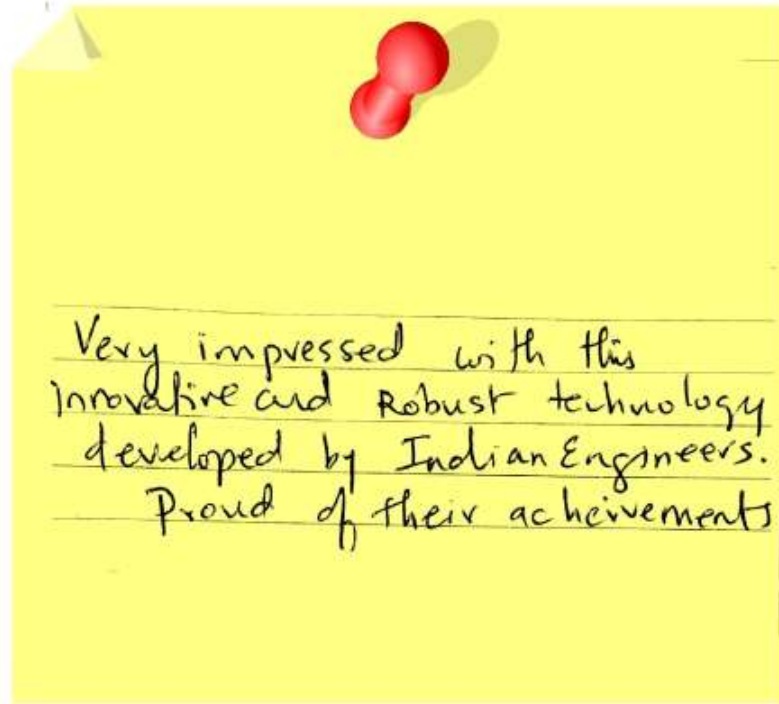 Very impressed with this
Innovative and Robust technology
developed by Indian Engineers.
Proud of their acheivements